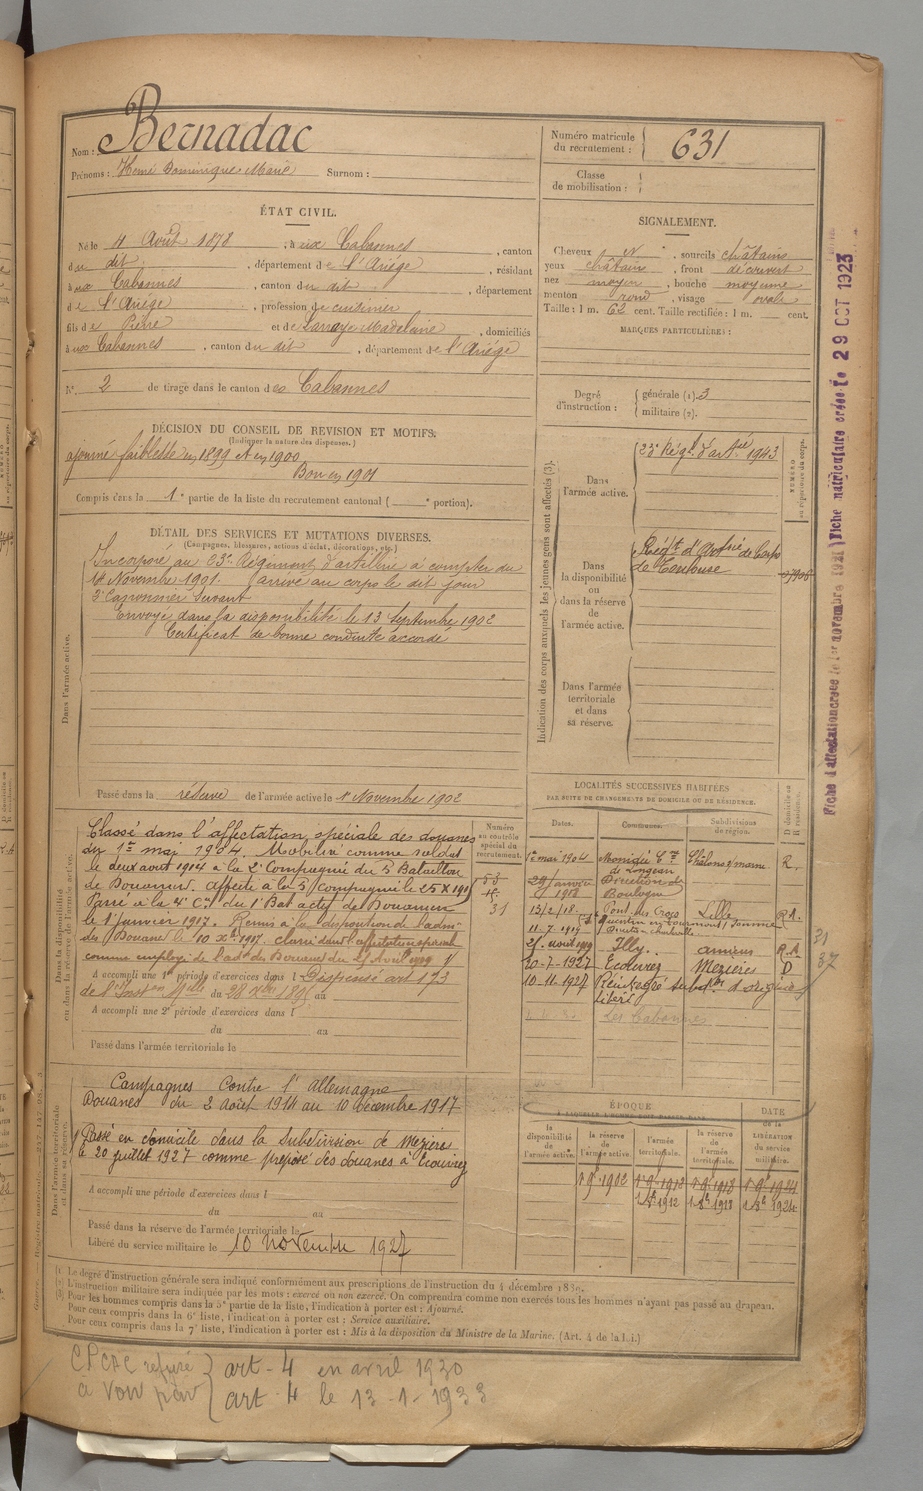 Nom : Bernadac
Prénoms : René Dominique Marie Surnom :
Numéro matricule
du recrutement : 631
Classe
de mobilisation :
ÉTAT CIVIL.
Né le 4 Août 1878, à aux Cabannes, canton
du dit, département de l'Ariège, résidant
à aux Cabannes, canton du dit, département
de l'Ariège, profession de cuisinier
fils de Pierre et de Larraye Madeleine, domiciliés
à aux Cabannes, canton du dit, département de l'Ariège
N° 2 de tirage dans le canton des Cabannes
SIGNALEMENT.
Cheveux N, sourcils châtains
yeux châtain, front découvert
nez moyen, bouche moyenne
menton rond, visage ovale
Taille : 1 m. 62 cent. Taille rectifiée : 1 m. cent.
MARQUES PARTICULIÈRES :
Degré
d'instruction :
générale (1). 3
militaire (2).
DÉCISION DU CONSEIL DE REVISION ET MOTIFS.
(Indiquer la nature des dispenses.)
ajourné faiblesse en 1899 et en 1900
Bon en 1901
Compris dans la 1e partie de la liste du recrutement cantonal ( e portion).
DÉTAIL DES SERVICES ET MUTATIONS DIVERSES.
(Campagnes, blessures, actions d'éclat, décorations, etc.)
Dans l'armée active.
Incorporé au 23e Régiment d'artillerie à compter du
14 Novembre 1901. arrivé au corps le dit jour
2e Canonnier Servant
Envoyé dans la disponibilité le 13 Septembre 1902
Certificat de bonne conduite accordé
Passé dans la réserve de l'armée active le 1 Novembre 1902
Indication des corps auxquels les jeunes gens sont affectés (3).
Dans
l'armée active.
23e Régt d'artie 1943
NUMÉRO
au répertoire du corps.
Dans
la disponibilité
ou
dans la réserve
de
l'armée active.
Régt d'Artie de Corps
de Toulouse
Dans l'armée
territoriale
et dans
sa réserve.
Dans la disponibilité
ou dans la réserve de l'armée active.
Classé dans l'affectation spéciale des douanes
du 1er mai 1904. Mobilisé comme soldat
le deux août 1914 à la 2e Compagnie du 5 Bataillon
de Douaniers. Affecté à la 5 compagnie le 25 X 191
Passé à la 4e Cie du 1er Bat actif de Douaniers
le 1 janvier 1917. Remis à la disposition de l'adm
des Douanes le 10 Xbre 1917. classé dans l'affectation spéciale
comme employé de l'ad. des Douanes du 25 Août 1919
A accompli une 1re période d'exercices dans l Dispensé art 173
de l'Inston Mlle du 28 Xbre 1895 au
A accompli une 2e période d'exercices dans l
du au
Passé dans l'armée territoriale le
Numéro
au contrôle
spécial du
recrutement.
31
LOCALITÉS SUCCESSIVES HABITÉES
PAR SUITE DE CHANGEMENTS DE DOMICILE OU DE RÉSIDENCE.
Dates. Communes. Subdivisions
de région.
D domicile ou
R résidence.
1er mai 1904 Châlons s/marne R.
Direction de
Boulogne
13/2/18 Lille R.
11.7.1919
25 août 1919 Illy. amiens R.
20-7-1927 Ecouviez Mezières D
10-11-1927
libéré
Les Cabannes
31
37
Dans l'armée territoriale
et dans sa réserve.
Campagnes Contre l'Allemagne
Douanes du 2 Août 1914 au 10 décembre 1917
Passé en domicile dans la Subdivision de Mezières
le 20 juillet 1927 comme préposé des douanes à Ecouviez
A accompli une période d'exercices dans l
du au
Passé dans la réserve de l'armée territoriale le
Libéré du service militaire le 10 novembre 1927
ÉPOQUE
À LAQUELLE L'HOMME DOIT PASSER DANS
DATE
de la
LIBÉRATION
du service
militaire.
la
disponibilité
de
l'armée active.
la réserve
de
l'armée active
l'armée
territoriale.
la réserve
de l'armée
territoriale.
1 9bre 1902 1 9bre 1912 1 9bre 1918 1 9bre 1924
(1) Le degré d'instruction générale sera indiqué conformément aux prescriptions de l'instruction du 4 décembre 1889.
(2) L'instruction militaire sera indiquée par les mots : exercé ou non exercé. On comprendra comme non exercés tous les hommes n'ayant pas passé au drapeau.
(3) Pour les hommes compris dans la 5e partie de la liste, l'indication à porter est : Ajourné.
Pour ceux compris dans la 6e liste, l'indication à porter est : Service auxiliaire.
Pour ceux compris dans la 7e liste, l'indication à porter est : Mis à la disposition du Ministre de la Marine. (Art. 4 de la loi.)
refusé art - 4 en avril 1930
art 4 le 13 - 1 - 1933
Fiche d'affectation créée le 1er novembre 1921 Fiche matriculaire créée le 29 OCT 1923